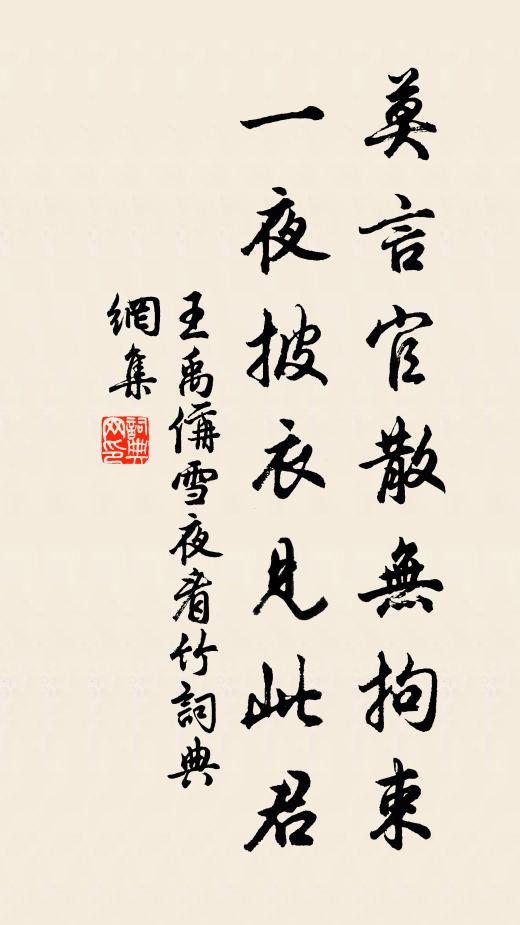 莫言官散無拘束
一夜披衣見此君
王禹偁雪夜看竹詞典
網集
詞典
网印